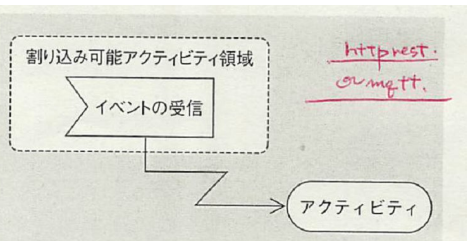 割り込み可能アクティビティ領域
イベントの受信
アクティビティ
http rest.
or mqtt.